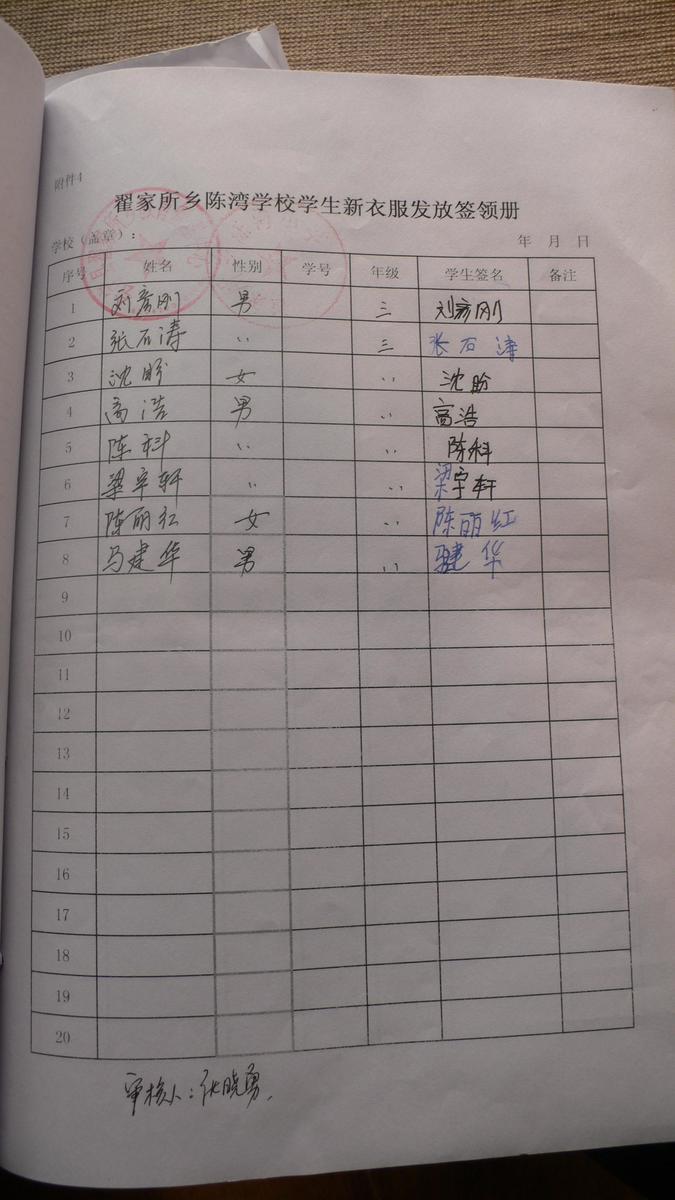 附件4
翟家所乡陈湾学校学生新衣服发放签领册
学校（盖章）： 年 月 日
序号 姓名 性别 学号 年级 学生签名 备注
1 刘彦刚 男 三 刘彦刚
2 张石涛 〃 三 张石涛
3 沈盼 女 〃 沈盼
4 高浩 男 〃 高浩
5 陈科 〃 〃 陈科
6 梁宇轩 〃 〃 梁宇轩
7 陈丽红 女 〃 陈丽红
8 马建华 男 〃 马建华
9
10
11
12
13
14
15
16
17
18
19
20
审核人：张晓勇.